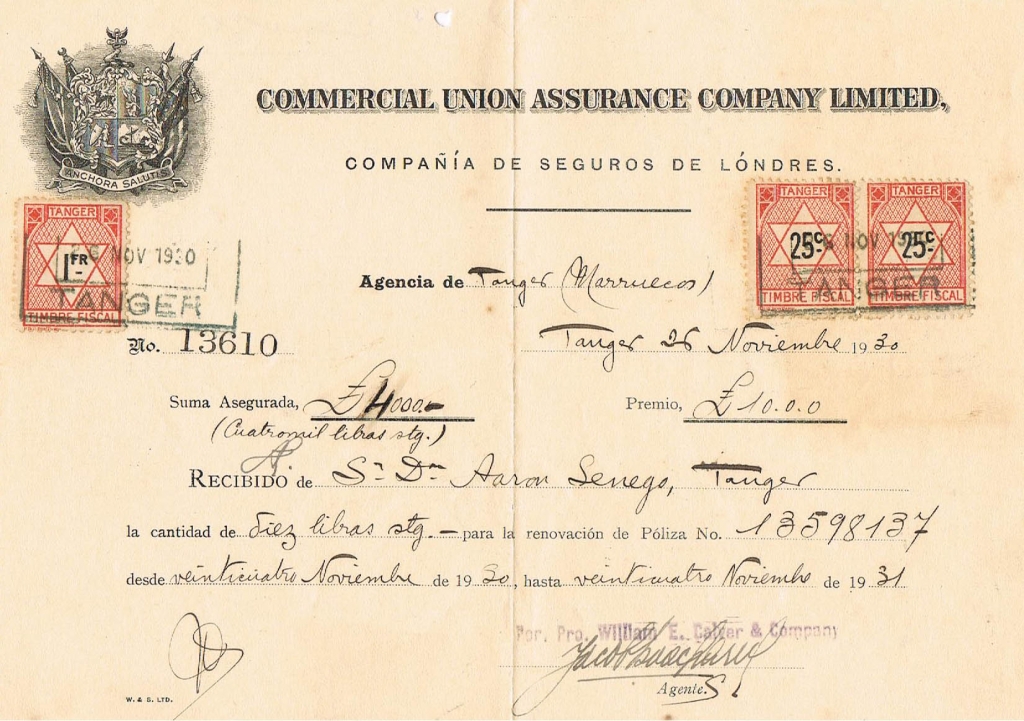 COMMERCIAL UNION ASSURANCE COMPANY LIMITED,
ANCHORA SALUTIS
COMPAÑÍA DE SEGUROS DE LÓNDRES.
TANGER
1 FR
TIMBRE FISCAL
26 NOV 1930
TANGER
TANGER
25c
TIMBRE FISCAL
TANGER
25c
TIMBRE FISCAL
TANGER
Agencia de Tanger (Marruecos)
No. 13610
Tanger 26 Noviembre 1930
Suma Asegurada, £4000.-
Premio, £10.0.0
(Cuatromil libras stg.)
RECIBIDO de Sr. Dn. Aaron Senego, Tanger
la cantidad de diez libras stg. - para la renovación de Póliza No. 13598137
desde veinticuatro Noviembre de 1930, hasta veinticuatro Noviembre de 1931
Por. Pro. William E. Calver & Company
Agente.S
W. & S. LTD.